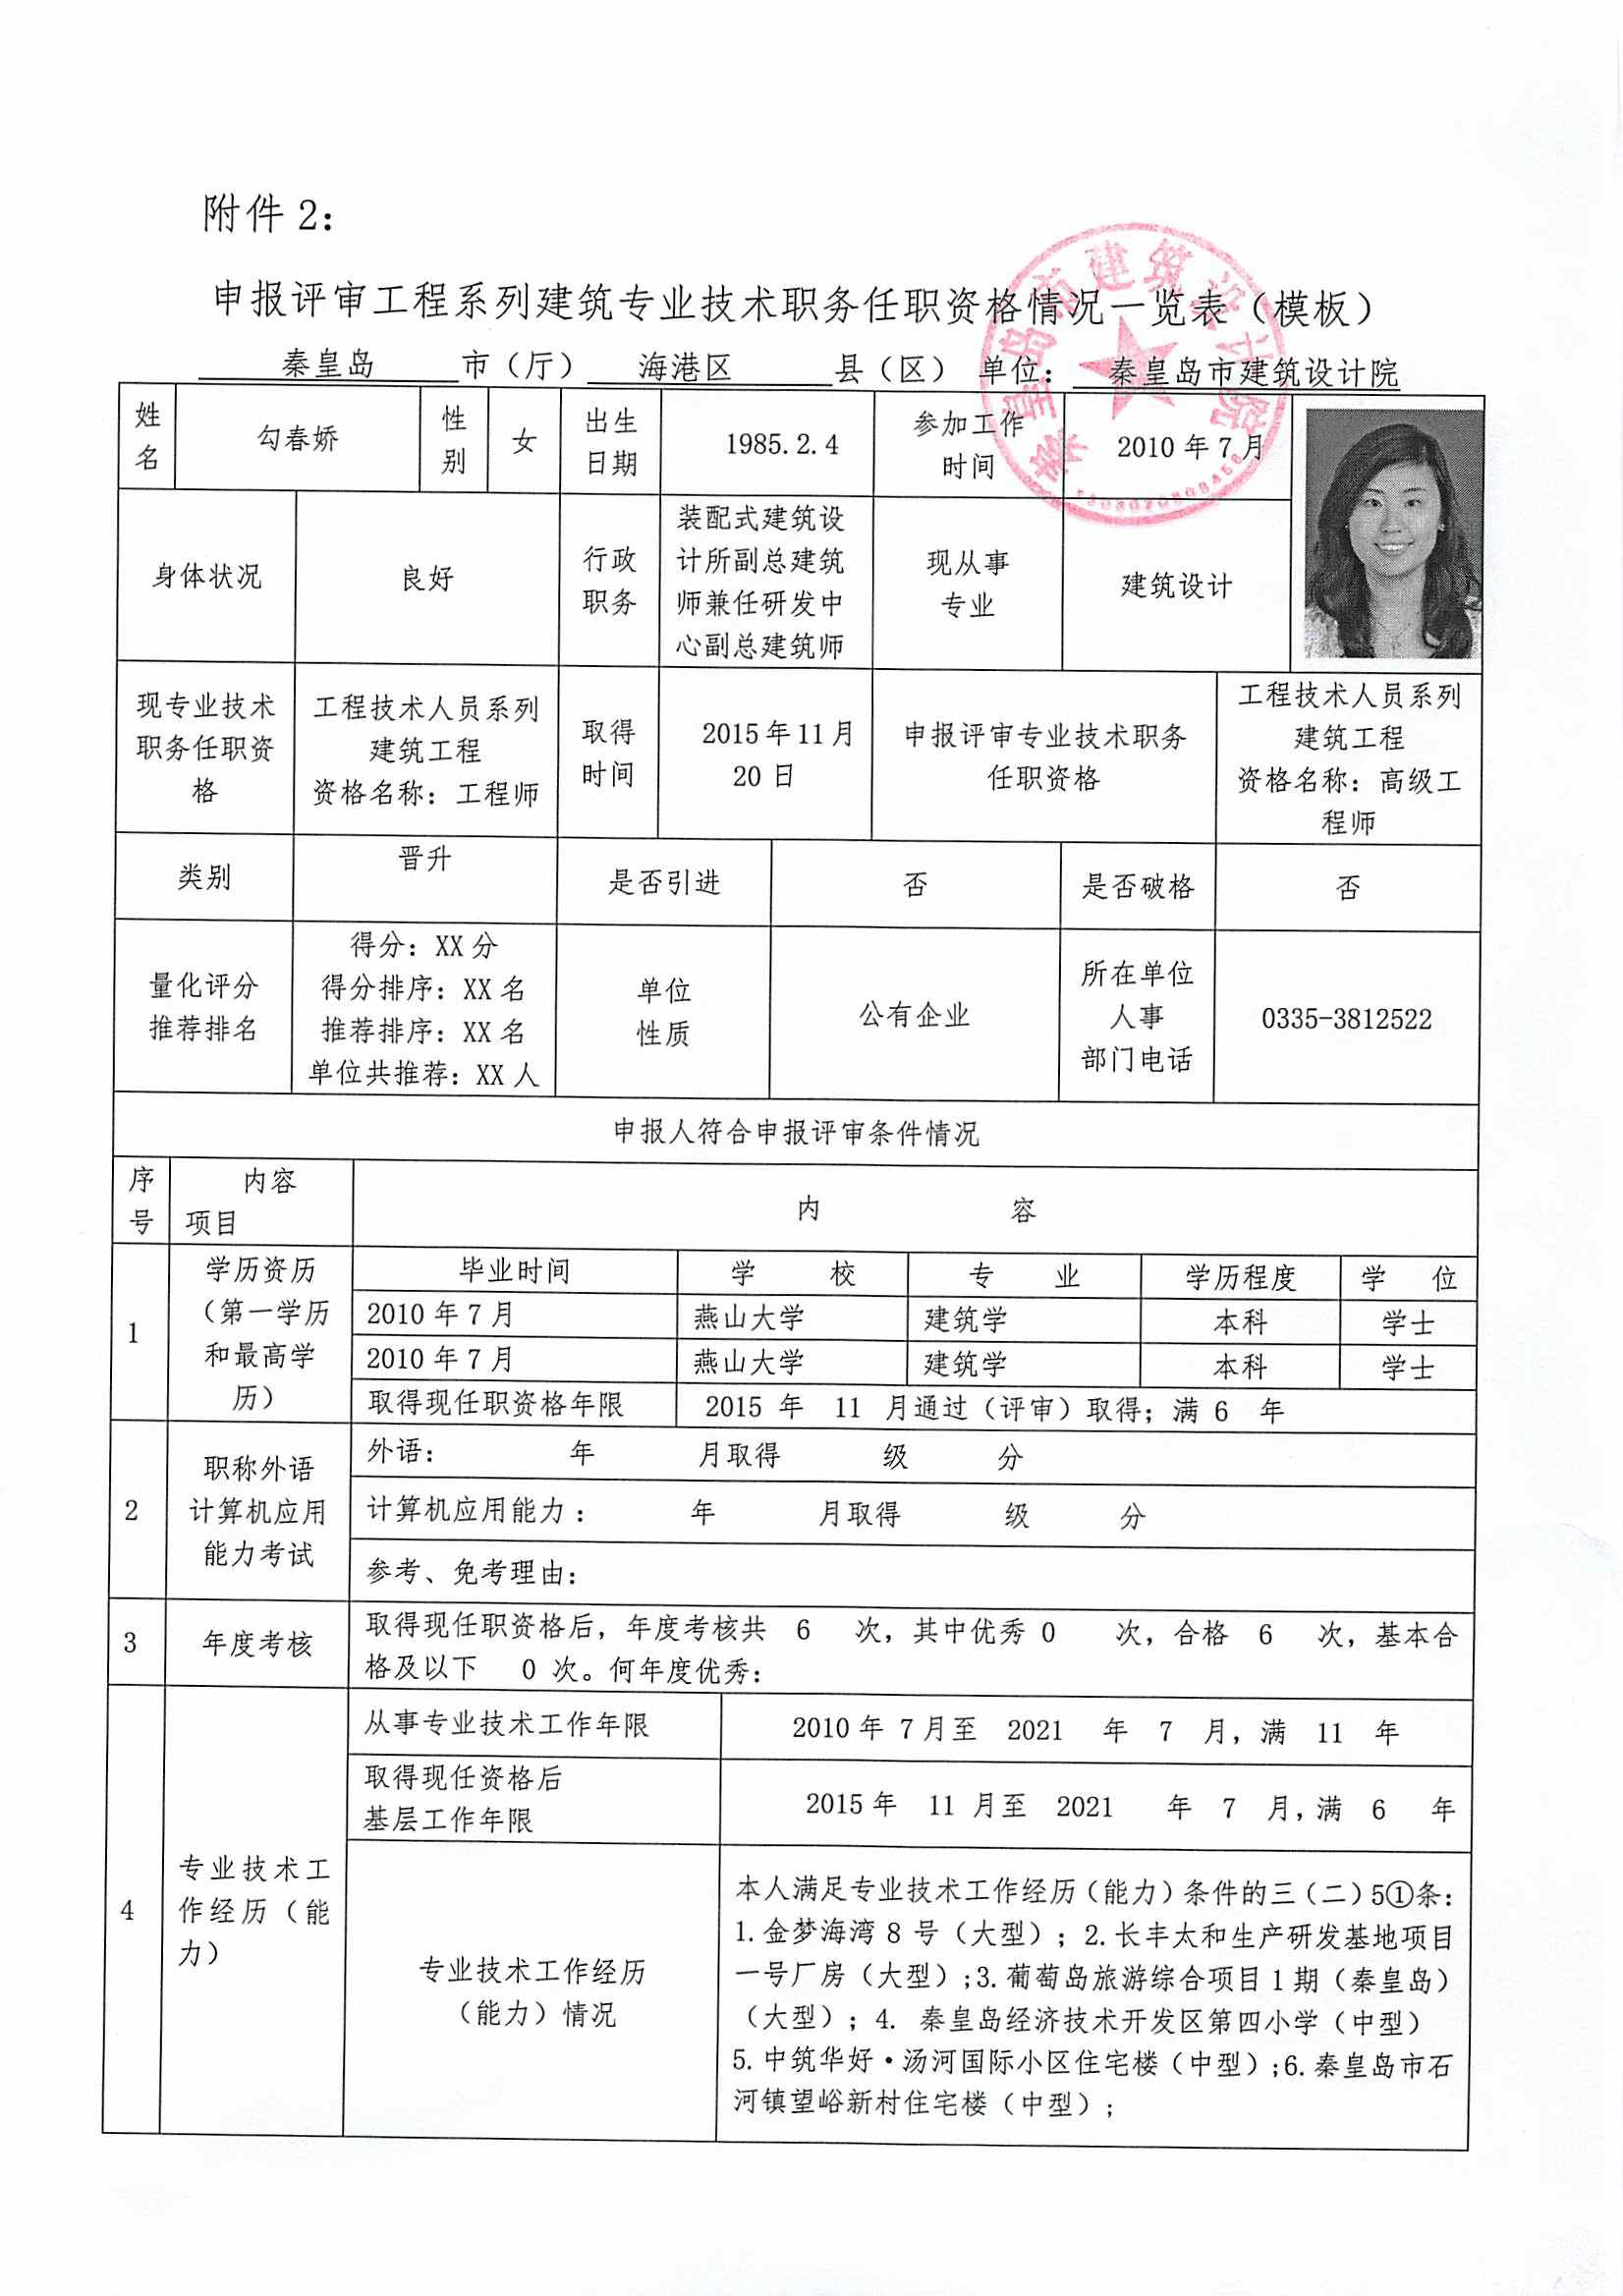 附件 2：
申报评审工程系列建筑专业技术职务任职资格情况一览表（模板）
秦皇岛 市（厅） 海港区 县（区） 单位： 秦皇岛市建筑设计院
秦皇岛市建筑设计院
姓名 勾春娇 性别 女 出生日期 1985.2.4 参加工作时间 2010 年 7 月
身体状况 良好 行政职务 装配式建筑设计所副总建筑师兼任研发中心副总建筑师 现从事专业 建筑设计
现专业技术职务任职资格 工程技术人员系列建筑工程 资格名称：工程师 取得时间 2015 年 11 月 20 日 申报评审专业技术职务任职资格 工程技术人员系列建筑工程 资格名称：高级工程师
类别 晋升 是否引进 否 是否破格 否
量化评分推荐排名 得分：XX 分
得分排序：XX 名
推荐排序：XX 名
单位共推荐：XX 人
单位性质 公有企业 所在单位人事部门电话 0335-3812522
申报人符合申报评审条件情况
序号 内容 项目 内 容
1 学历资历（第一学历和最高学历） 毕业时间 学 校 专 业 学历程度 学 位
2010 年 7 月 燕山大学 建筑学 本科 学士
2010 年 7 月 燕山大学 建筑学 本科 学士
取得现任职资格年限 2015 年 11 月通过（评审）取得；满 6 年
2 职称外语计算机应用能力考试 外语： 年 月取得 级 分
计算机应用能力： 年 月取得 级 分
参考、免考理由：
3 年度考核 取得现任职资格后，年度考核共 6 次，其中优秀 0 次，合格 6 次，基本合
格及以下 0 次。何年度优秀：
4 专业技术工作经历（能力） 从事专业技术工作年限 2010 年 7 月至 2021 年 7 月，满 11 年
取得现任资格后
基层工作年限 2015 年 11 月至 2021 年 7 月，满 6 年
专业技术工作经历
（能力）情况
本人满足专业技术工作经历（能力）条件的三（二）5①条：
1.金梦海湾 8 号（大型）；2.长丰太和生产研发基地项目
一号厂房（大型）;3.葡萄岛旅游综合项目 1 期（秦皇岛）
（大型）；4. 秦皇岛经济技术开发区第四小学（中型）
5.中筑华好·汤河国际小区住宅楼（中型）;6.秦皇岛市石
河镇望峪新村住宅楼（中型）；